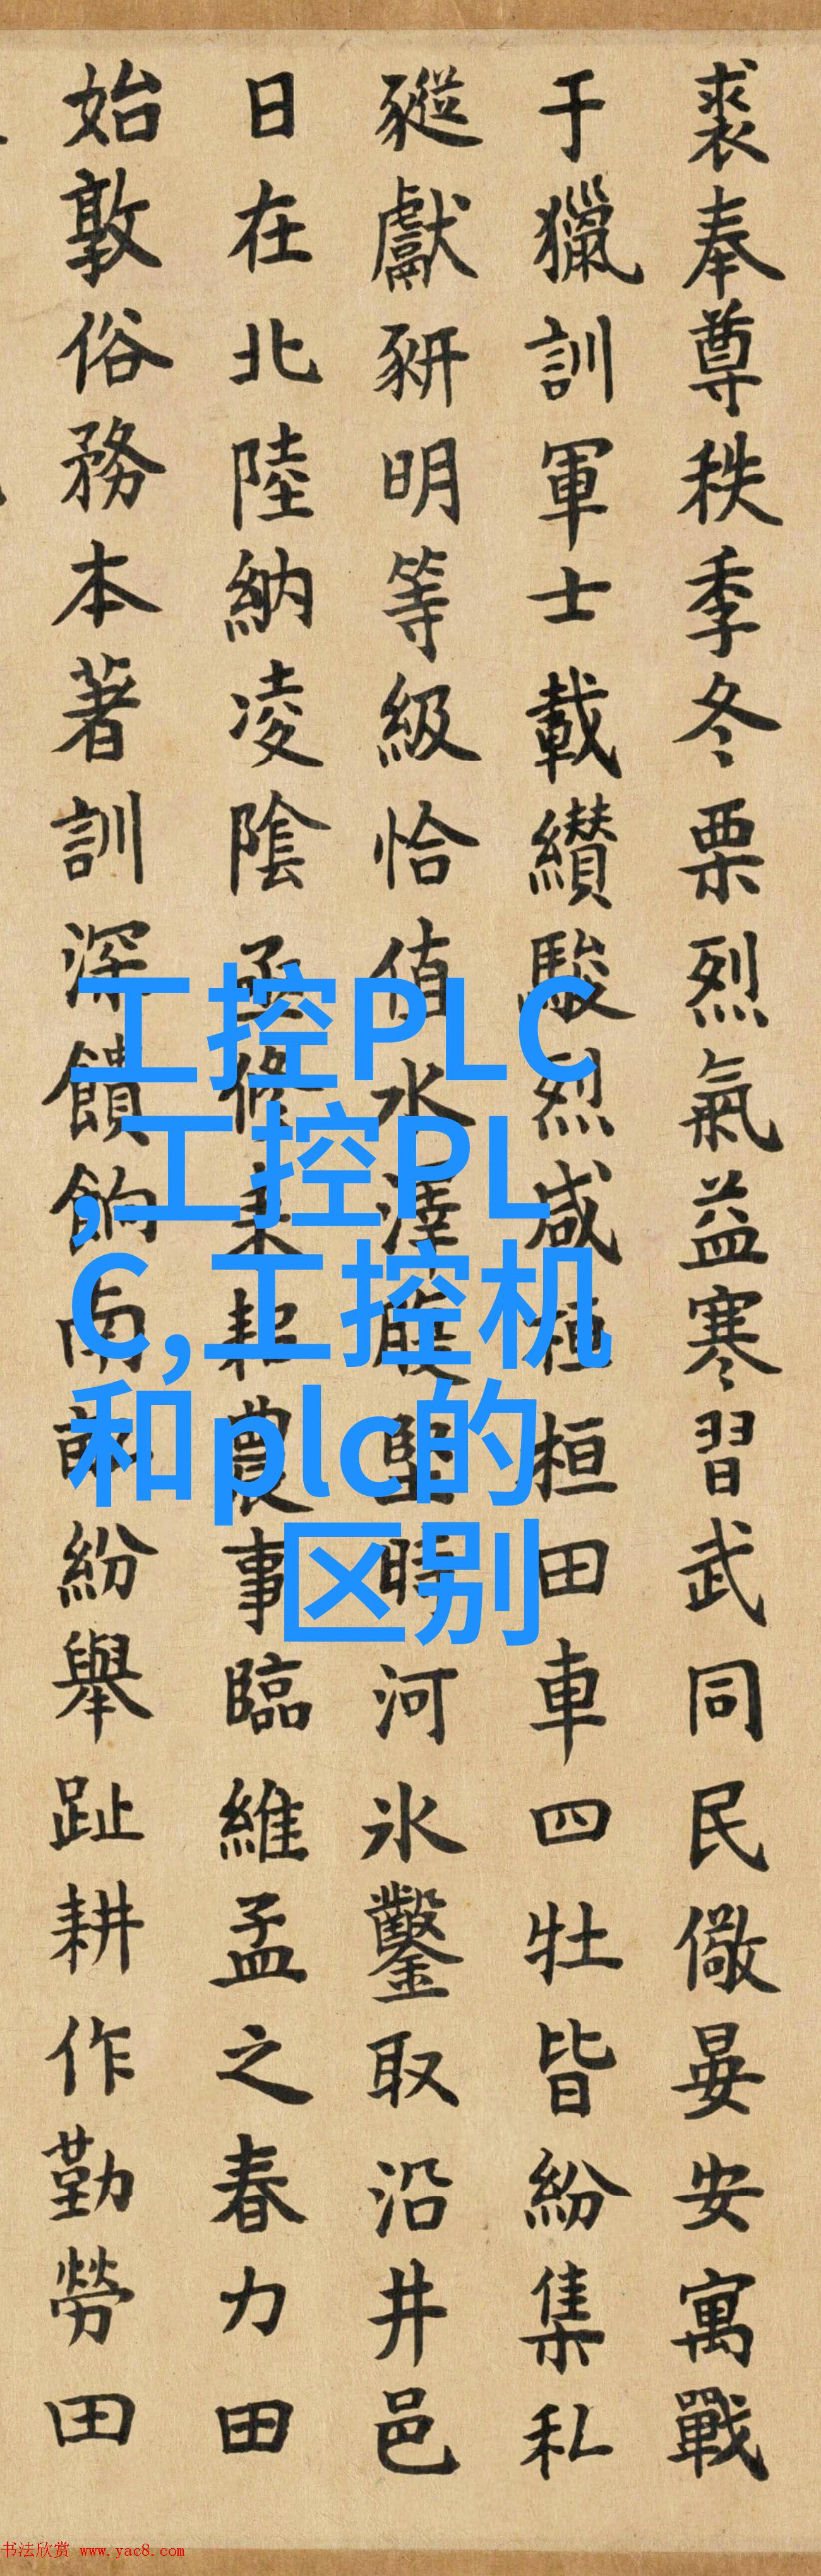 裘奉尊秩季冬栗烈氣益寒習武同民儆晏安寓戰
于獵訓軍士載纘駿烈咸桓桓田車四牡皆紛集私
豵獻豜明等級恰值水澤腹堅時河氷鑿取沿井邑
日在北陸納凌陰亟修耒耜農事臨維孟之春力田
始敦俗務本著訓深饋餉南畝紛舉趾耕作勤勞田
工控PLC
,工控PL
C,工控机
和plc的
区别
书法欣赏 www.yac8.com